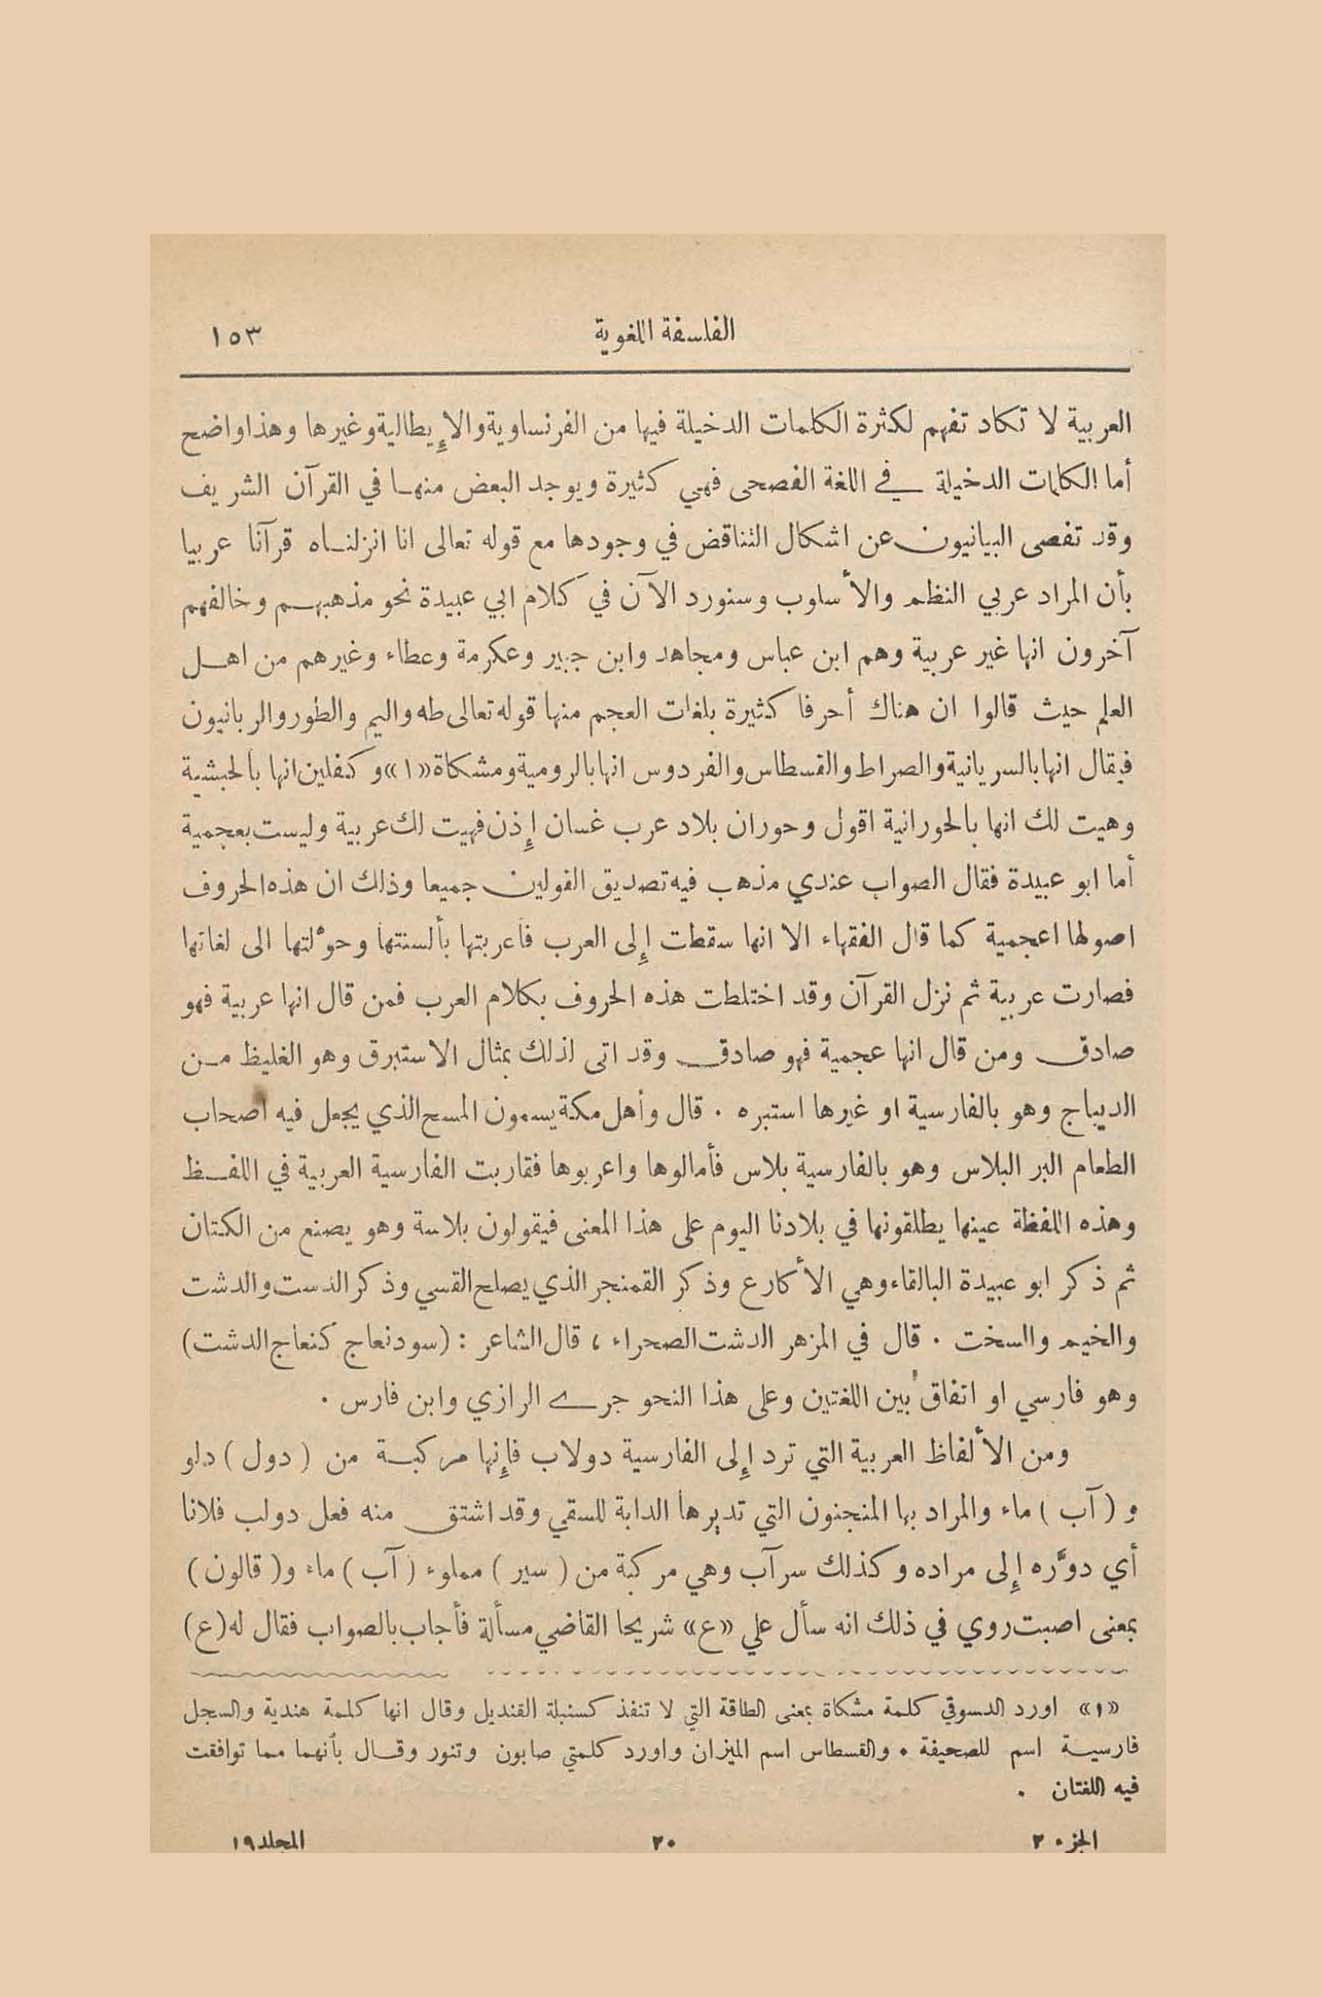 الفلسفة اللغوية ١٥٣
العربية لا تكاد تفهم لكثرة الكلمات الدخيلة فيها من الفرنساوية والإيطالية وغيرها وهذا واضح
أما الكلمات الدخيلة في اللغة الفصحى فهي كثيرة ويوجد البعض منها في القرآن الشريف
وقد تفصى البيانيون عن اشكال التناقض في وجودها مع قوله تعالى انا انزلناه قرآنا عربيا
بأن المراد عربي النظم والأسلوب وسنورد الآن في كلام ابي عبيدة نحو مذهبهم وخالفهم
آخرون انها غير عربية وهم ابن عباس ومجاهد وابن جبير وعكرمة وعطاء وغيرهم من اهل
العلم حيث قالوا ان هناك أحرفا كثيرة بلغات العجم منها قوله تعالى طه واليم والطور والربانيون
فيقال انها بالسريانية والصراط والقسطاس والفردوس انها بالرومية ومشكاة «١» وكفلين انها بالحبشية
وهيت لك انها بالحورانية اقول وحوران بلاد عرب غسان إذن فهيت لك عربية وليست بعجمية
أما ابو عبيدة فقال الصواب عندي مذهب فيه تصديق القولين جميعا وذلك ان هذه الحروف
اصولها اعجمية كما قال الفقهاء الا انها سقطت إلى العرب فاعربتها بألسنتها وحوّلتها الى لغاتها
فصارت عربية ثم نزل القرآن وقد اختلطت هذه الحروف بكلام العرب فمن قال انها عربية فهو
صادق ومن قال انها عجمية فهو صادق وقد اتى لذلك بمثال الاستبرق وهو الغليظ من
الديباج وهو بالفارسية او غيرها استبره . قال وأهل مكة يسمون المسح الذي يجعل فيه اصحاب
الطعام البر البلاس وهو بالفارسية بلاس فأمالوها واعربوها فقاربت الفارسية العربية في اللفظ
وهذه اللفظة عينها يطلقونها في بلادنا اليوم على هذا المعنى فيقولون بلاسة وهو يصنع من الكتان
ثم ذكر ابو عبيدة البالقاء وهي الأكارع وذكر القمنجر الذي يصلح القسي وذكر الدست والدشت
والخيم والسخت . قال في المزهر الدشت الصحراء ، قال الشاعر : (سود نعاج كنعاج الدشت)
وهو فارسي او اتفاق بين اللغتين وعلى هذا النحو جرى الرازي وابن فارس .
ومن الألفاظ العربية التي ترد إلى الفارسية دولاب فإنها مركبة من ( دول ) دلو
و ( آب ) ماء والمراد بها المنجنون التي تديرها الدابة للسقي وقد اشتق منه فعل دولب فلانا
أي دوّره إلى مراده وكذلك سرآب وهي مركبة من ( سير ) مملوء ( آب ) ماء و( قالون )
بمعنى اصبت روي في ذلك انه سأل علي «ع» شريحا القاضي مسألة فأجاب بالصواب فقال له (ع)
«١» اورد الدسوقي كلمة مشكاة بمعنى الطاقة التي لا تنفذ كسنبلة القنديل وقال انها كلمة هندية والسجل
فارسية اسم للصحيفة . والقسطاس اسم الميزان واورد كلمتي صابون وتنور وقال بأنهما مما توافقت
فيه اللغتان .
الجزء ٣ ٢٠ المجلد ١٩